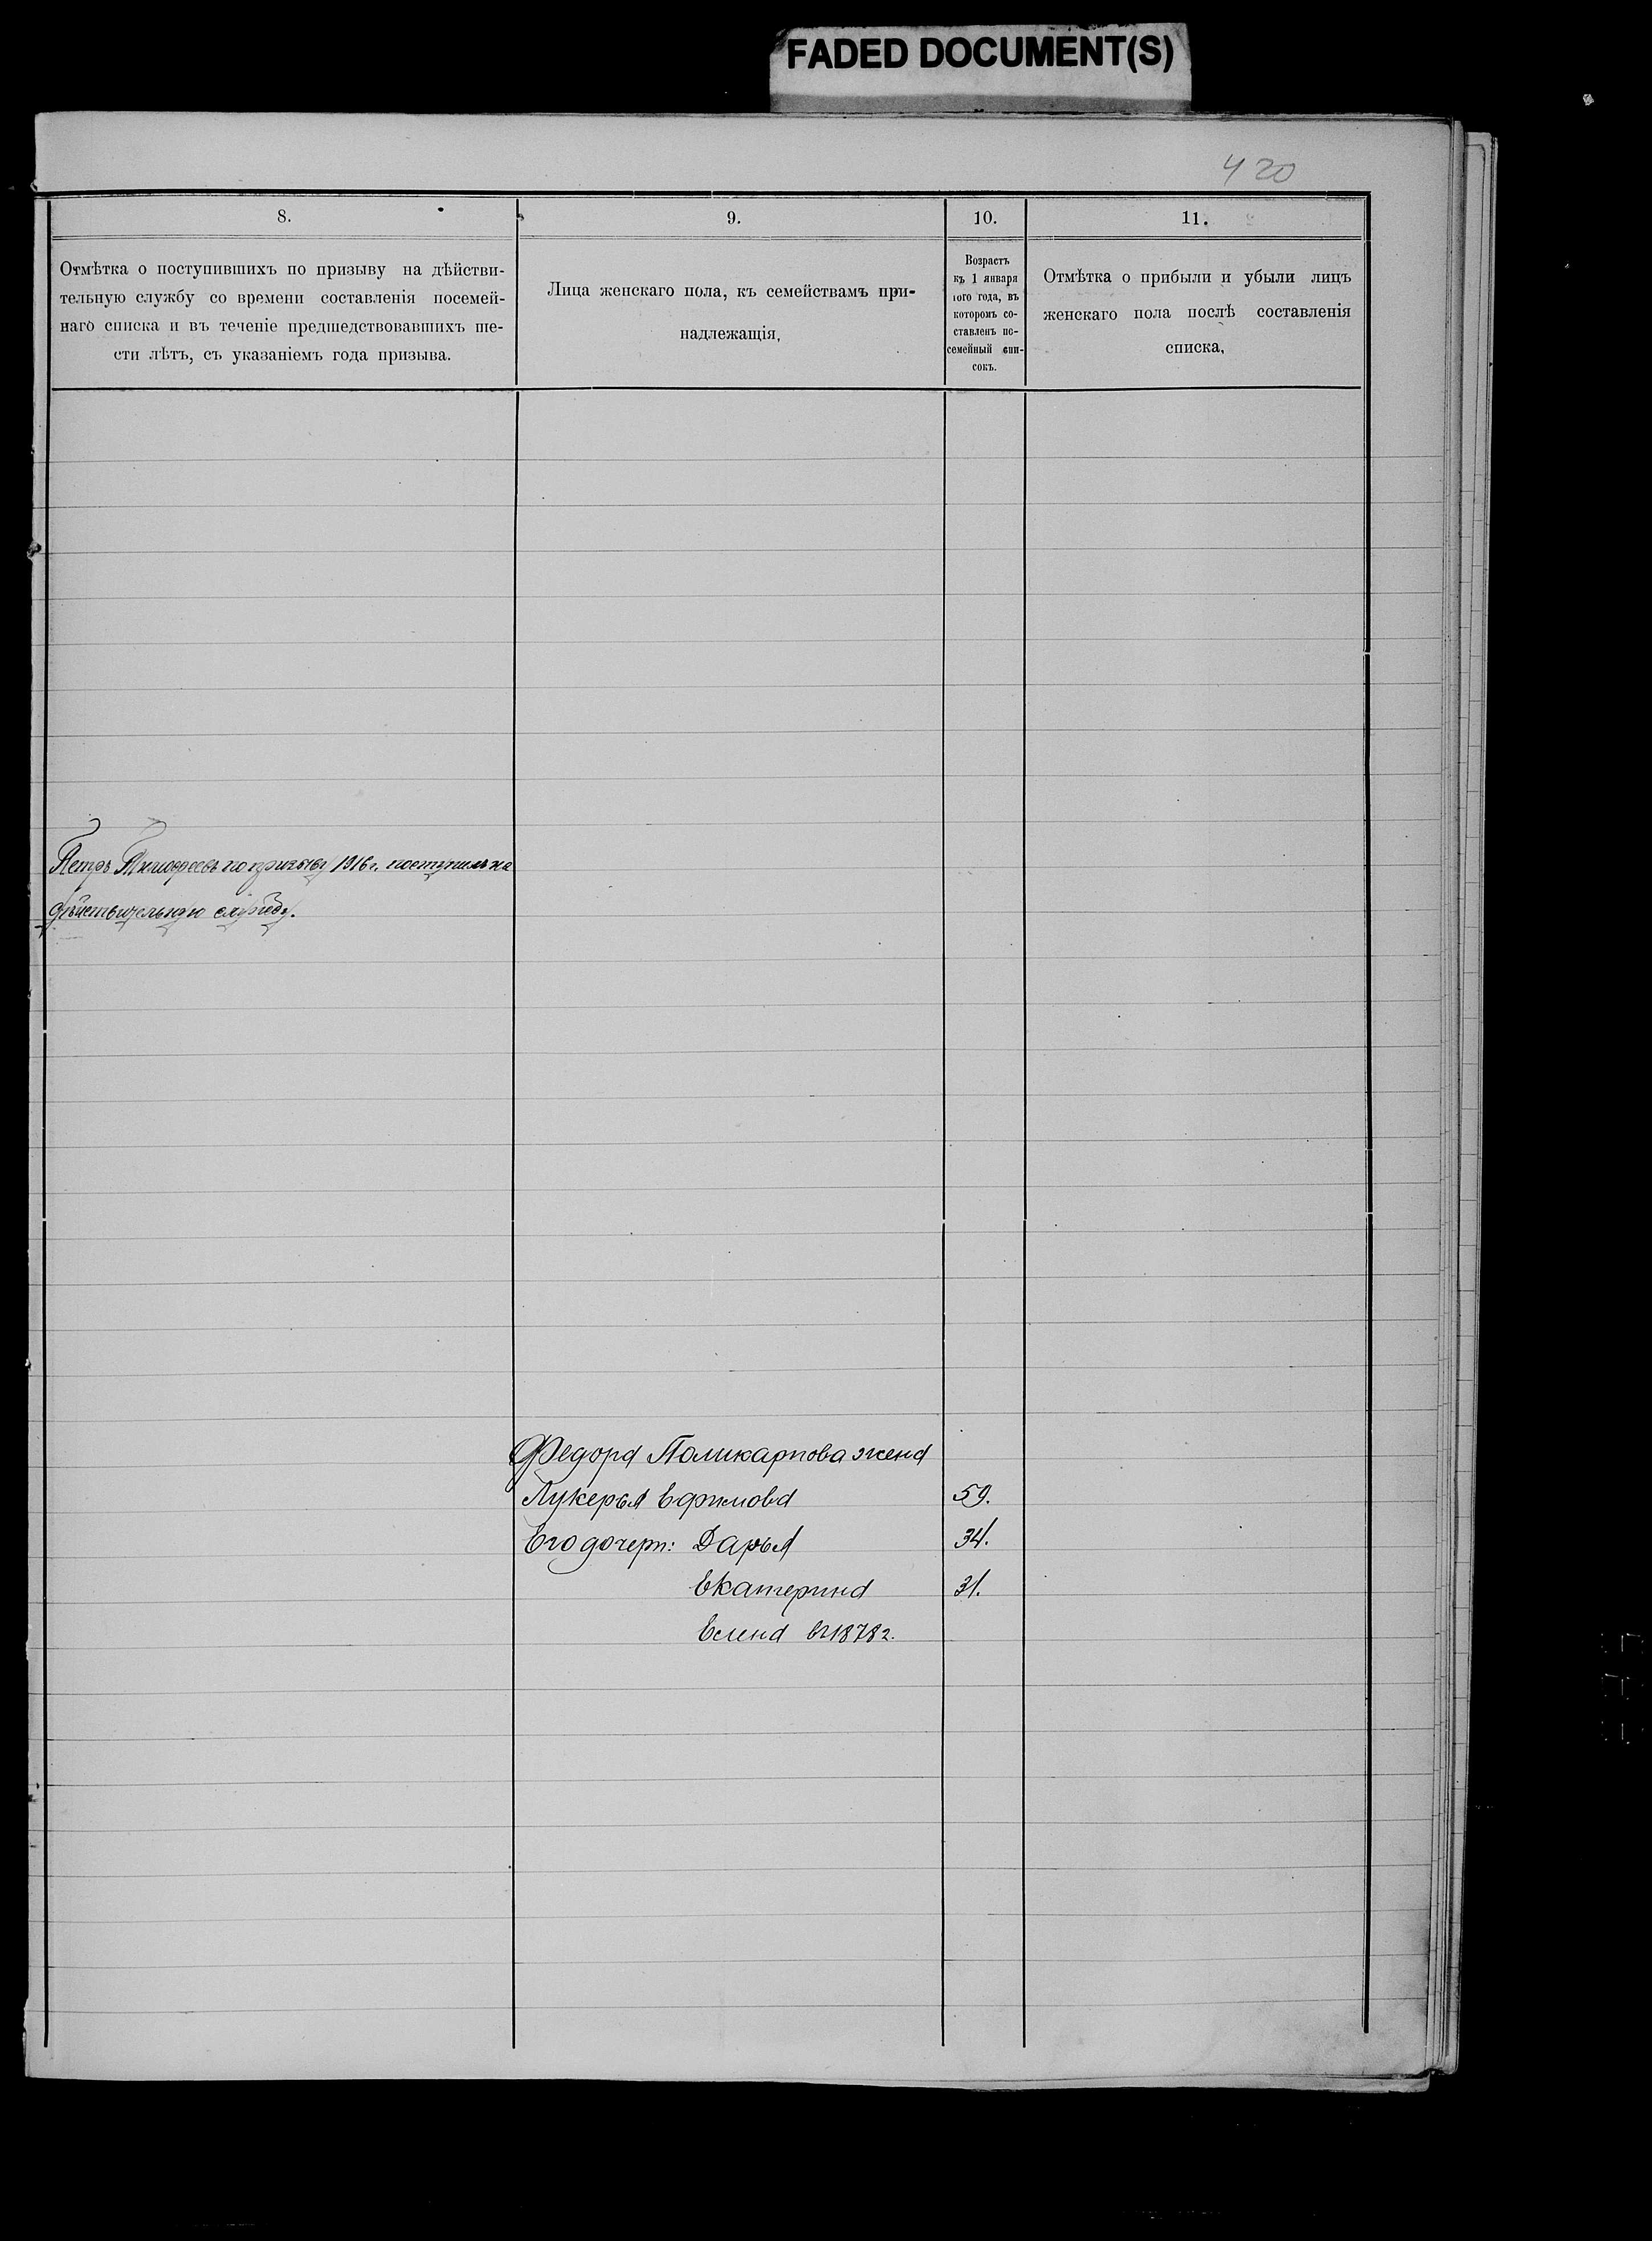 FADED DOCUMENT(S)
420
8.
Отмѣтка о поступившихъ по призыву на дѣйстви-
тельную службу со времени составленія посемей-
наго списка и въ теченіе предшедствовавшихъ ше-
сти лѣтъ, съ указаніемъ года призыва.
9.
Лица женскаго пола, къ семействамъ при-
надлежащія,
10.
Возрастъ
къ 1 января
того года, въ
которомъ со-
ставленъ по-
семейный спи-
сокъ.
11.
Отмѣтка о прибыли и убыли лицъ
женскаго пола послѣ составленія
списка,
Петръ Тимофеевъ по призыву 1916 г. поступилъ на
дѣйствительную службу.
Федора Поликарпова жена
Лукерья Ефимова 59.
Его дочери: Дарья 34.
Екатерина 31.
Елена въ 1878 г.